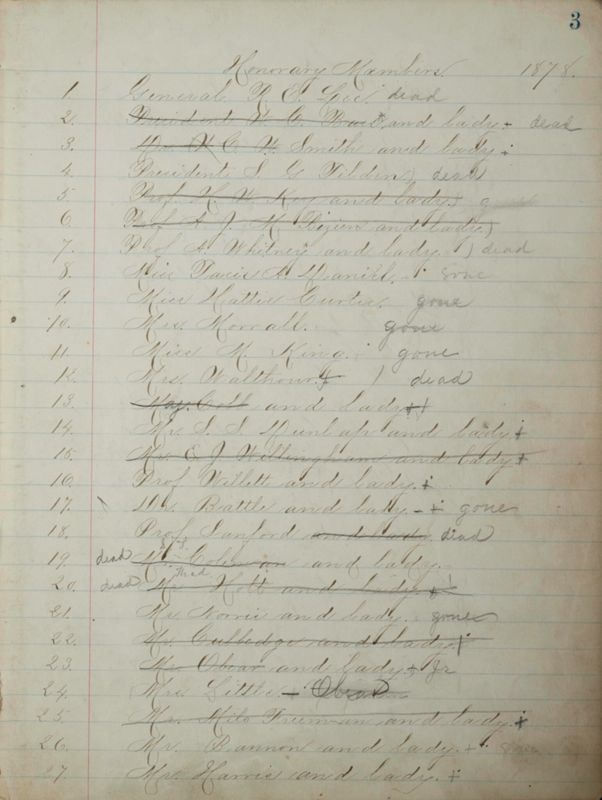 3
Honorary Members. 1878.
1 General R. E. Lee dead
2. President and lady + dead
3. Smith and lady
4. President S. G. dead
5. Prof. H. W. Key and lady
6. Prof. A. J. M. and lady
7. Prof. A. Whitney and lady. dead
8. Miss gone
9. Miss Hattie Curtis. gone
10. Miss gone
11. Miss M. King. gone
12. Mrs. Walthour. dead
13. May. and lady
14. Mr. S. S. Dunlap and lady
15. Mr. C. J. Willingham and lady
16. Prof Willett and lady.
17. Dr. Battle and lady gone
18. Prof. Sanford and lady dead
19. dead and lady.
20. dead Mr. Holt and lady
21. Mr. Norris and lady. gone
22. Mr. and lady.
23. Mr. Obear and lady Jr
24. Mrs Little
25. Mr. Milo Freeman and lady.
26. Mr. Bannon and lady.
27. Mr. Harris and lady.